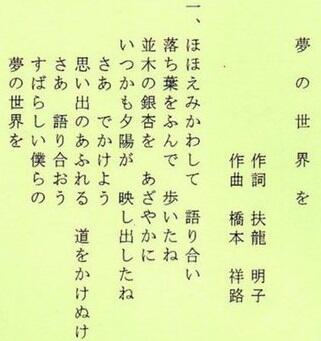 夢の世界を
作詞 扶龍 明子
作曲 橋本 祥路
一、ほほえみかわして 語り合い
落ち葉をふんで 歩いたね
並木の銀杏を あざやかに
いつかも夕陽が 映し出したね
さあ でかけよう
思い出のあふれる 道をかけぬけ
さあ 語り合おう
すばらしい僕らの
夢の世界を